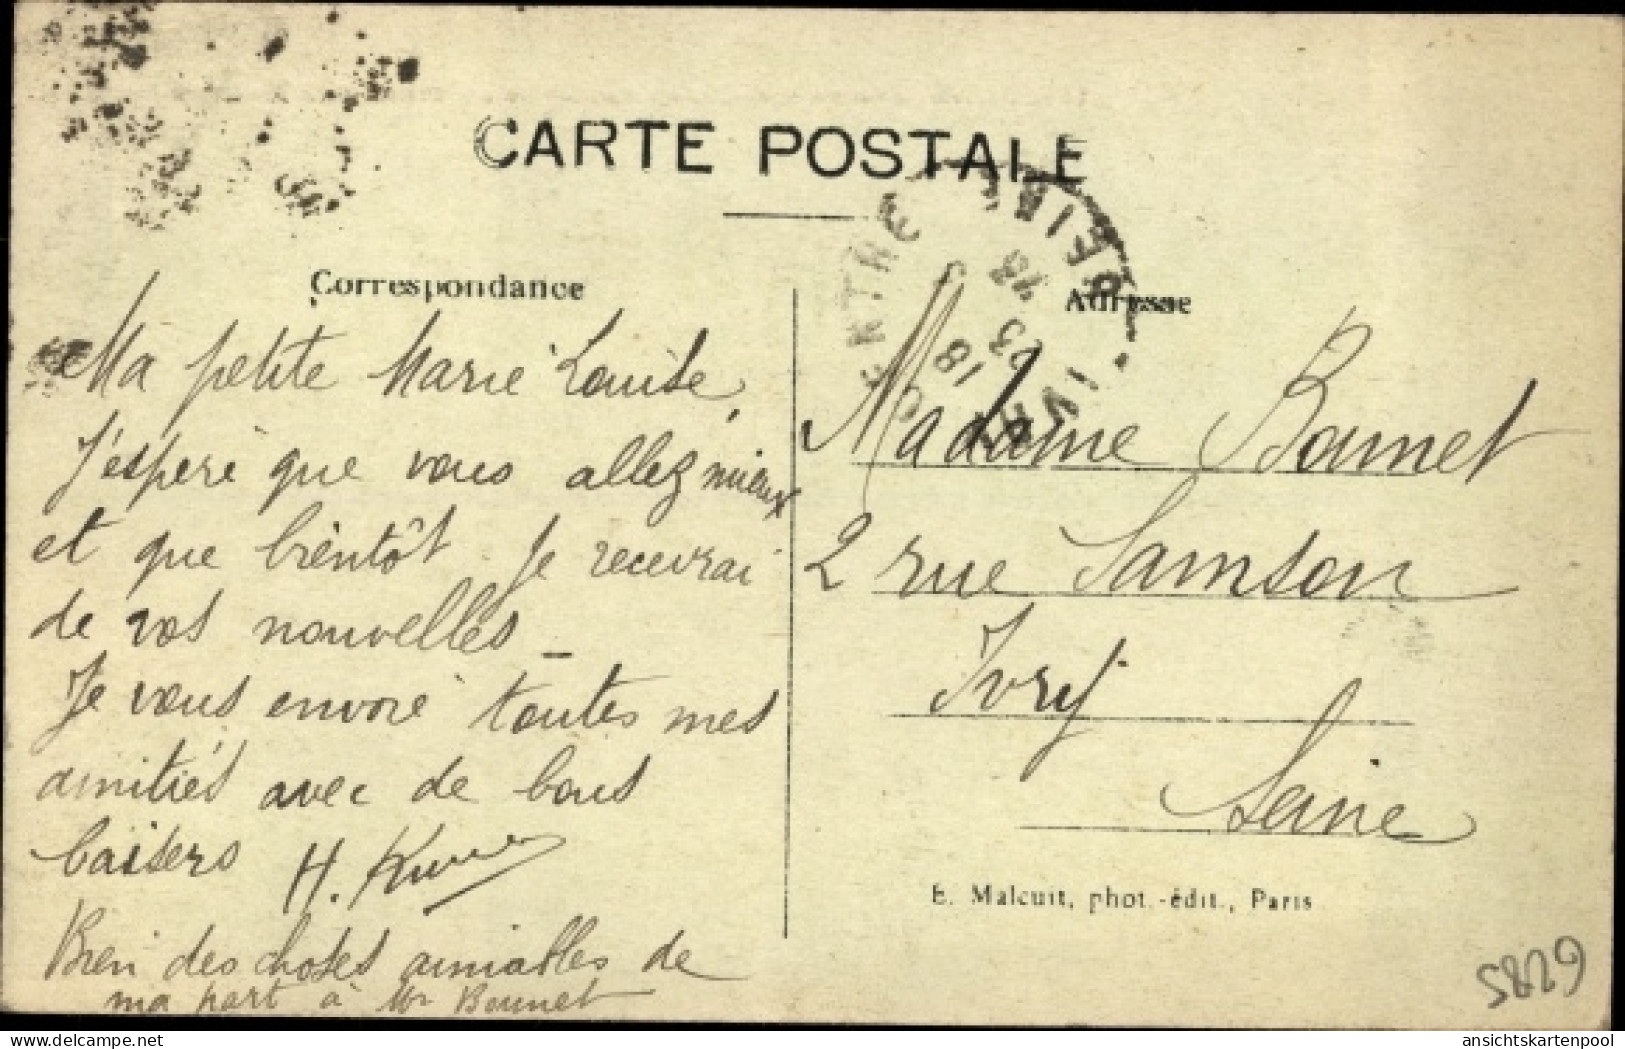 CARTE POSTALE
Correspondance
Ma petite Marie Louise,
J'espère que vous allez mieux
et que bientôt je recevrai
de vos nouvelles _
Je vous envoie toutes mes
amitiés avec de bons
baisers H.
Bien des choses aimables de
ma part à Mr Bonnet
Adresse
Madame Bonnet
2 rue Samson
Ivry
Seine
E. Malcuit, phot.-édit., Paris
5829
delcampe.net
ansichtskartenpool